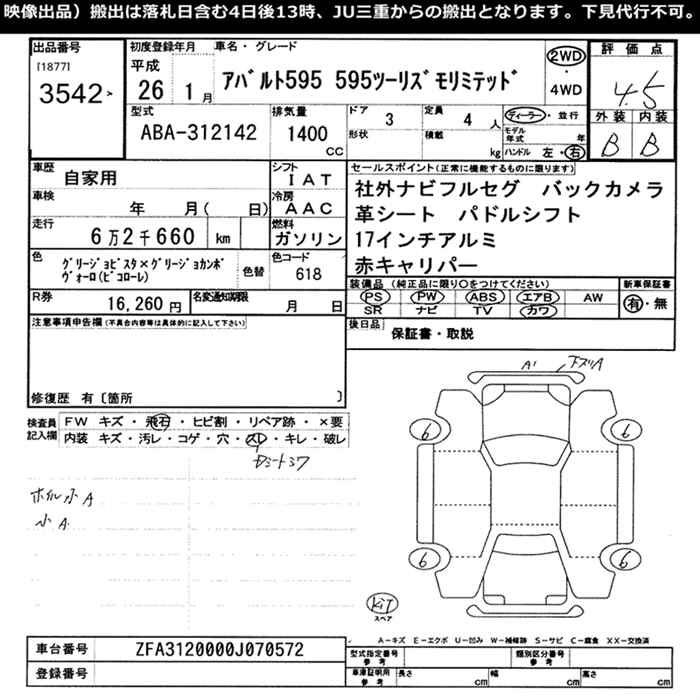 映像出品）搬出は落札日含む4日後13時、JU三重からの搬出となります。下見代行不可。
出品番号
[1877]
3542>
初度登録年月
平成
26 1月
車名・グレード
アバルト595 595ツーリズモリミテッド
2WD
・
4WD
評価点
4.5
外装 内装
B B
型式
ABA-312142
排気量
1400
CC
ドア 3
形状
定員 4 人
積載 kg
ディーラー・並行
モデル年式 年
ハンドル 左・右
車歴
自家用
シフト
IAT
車検
年 月( 日)
冷房
AAC
走行
6万2千660 km
燃料
ガソリン
色
グリージョビスタ×グリージョカンポ
ヴォーロ(ビコローレ)
色替
色コード
618
R券
16,260円
名変通知期限
月 日
セールスポイント(正常に機能するものに限ります)
社外ナビフルセグ バックカメラ
革シート パドルシフト
17インチアルミ
赤キャリパー
装備品(純正品に限り○をつけてください)
PS PW ABS エアB AW
SR ナビ TV カワ
新車保証書
有・無
後日品
保証書・取説
注意事項申告欄(不具合内容等は具体的に記入して下さい)
修復歴 有〔箇所 〕
検査員
記入欄
FW キズ・飛石・ヒビ割・リペア跡・×要
内装 キズ・汚レ・コゲ・穴・スレ・キレ・破レ
ホイル小A
小A
A1
下スリA
6
6
6
6
KIT
スペア
A-キズ E-エクボ U-凹み W-補修跡 S-サビ C-腐食 XX-交換済
車台番号
ZFA3120000J070572
登録番号
型式指定番号
参考
類別区分番号
参考
車庫証明用
参考
長さ cm
幅 cm
高さ cm